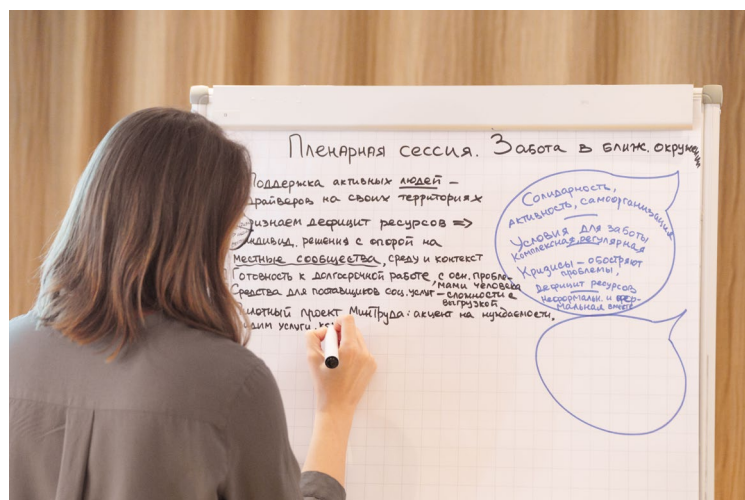 Пленарная сессия. Забота в ближ. окруже
Поддержка активных людей –
драйверов на своих территориях
Признаем дефицит ресурсов ⇒
индивид. решения с опорой на
местные сообщества, среду и контекст
Готовность к долгосрочной работе, с осн. пробле-
мами человека
Средства для поставщиков соц. услуг – сложности с
выгрузкой
Пилотный проект МинТруда: акцент на нуждаемости.
услуги.
Солидарность,
активность, самоорганизация
Условия для заботы
Комплексная, регулярная
Кризисы – обостряют
проблемы,
дефицит ресурсов
Неформальн. и фор-
мальная вместе